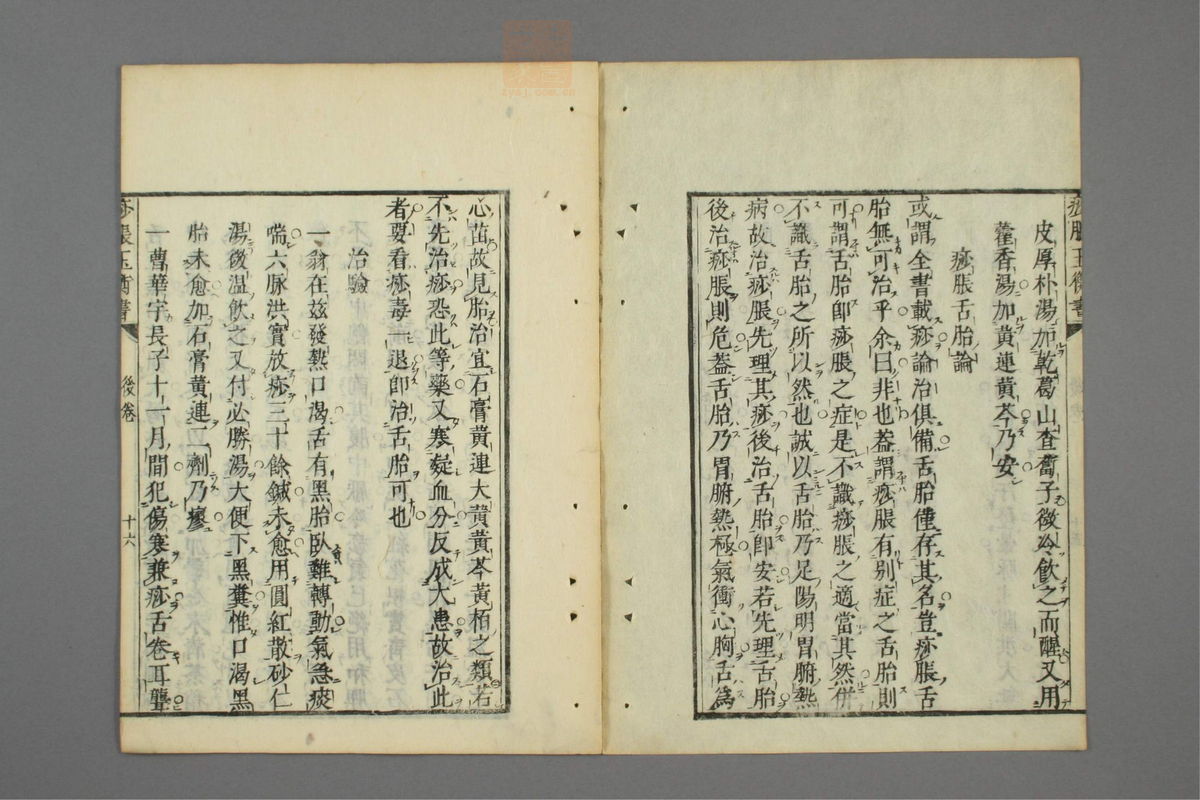 皮厚朴湯加乾葛山查蔔子微冷飲之而醒又用
藿香湯加黃連黃芩乃安
痧脹舌胎論
或謂全書載痧論治俱備舌胎僅存其名豈痧脹舌
胎無可治乎余曰非也蓋謂痧脹有別症之舌胎則
可謂舌胎卽痧脹之症是不識痧脹之適當其然併
不識舌胎之所以然也誠以舌胎乃足陽明胃腑熱
病故治痧脹先理其痧後治舌胎卽安若先理舌胎
後治痧脹則危蓋舌胎乃胃腑熱極氣衝心胸舌為
心苗故見胎治宜石膏黃連大黃黃芩黃栢之類若
不先治痧恐此等藥又寒凝血分反成大患故治此
者要看痧毒一退卽治舌胎可也
治驗
一翁在茲發熱口渴舌有黑胎臥難轉動氣急痰
喘六脉洪實放痧三十餘鍼未愈用圓紅散砂仁
湯後溫飲之又付必勝湯大便下黑糞惟口渴黑
胎未愈加石膏黃連二劑乃瘳
一曹華宇長子十一月間犯傷寒兼痧舌卷耳聾
痧脹玉衡書
後卷
十六
zysj.com.cn